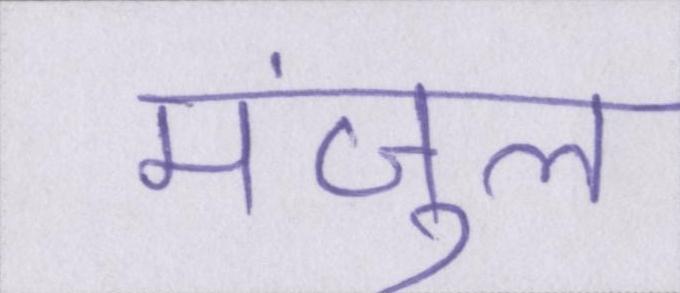 मंजुल